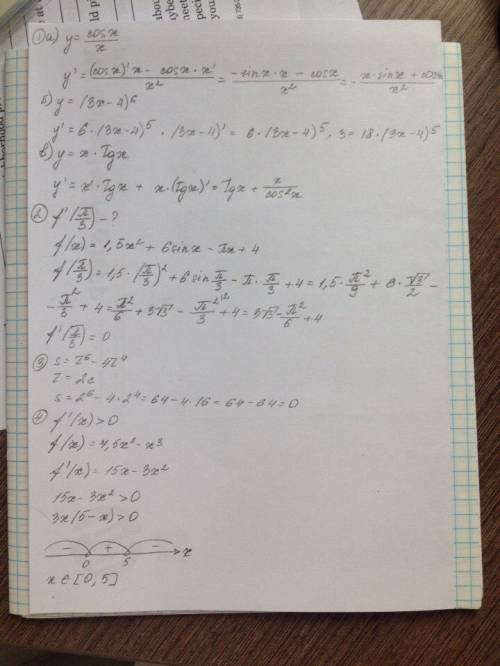 ① а) y = cosx/x
y' = ((cosx)'x - cosx·x')/x² = (-sinx·x - cosx)/x² = -(x·sinx + cosx)/x²
б) y = (3x-4)⁶
y' = 6·(3x-4)⁵·(3x-4)' = 6·(3x-4)⁵·3 = 18·(3x-4)⁵
в) y = x·tgx
y' = x'·tgx + x·(tgx)' = tgx + x/cos²x
② f'(π/3) - ?
f(x) = 1,5x² + 6sinx - πx + 4
f(π/3) = 1,5·(π/3)² + 6sin π/3 - π·π/3 + 4 = 1,5·π²/9 + 6·√3/2 -
- π²/3 + 4 = π²/6 + 3√3 - π²/3 + 4 = 3√3 - π²/6 + 4
f'(π/3) = 0
③ s = t⁶ - 4t⁴
t = 2c
s = 2⁶ - 4·2⁴ = 64 - 4·16 = 64 - 64 = 0
④ f'(x) > 0
f(x) = 7,5x² - x³
f'(x) = 15x - 3x²
15x - 3x² > 0
3x(5-x) > 0
- + - x
0 5
x ∈ [0; 5]